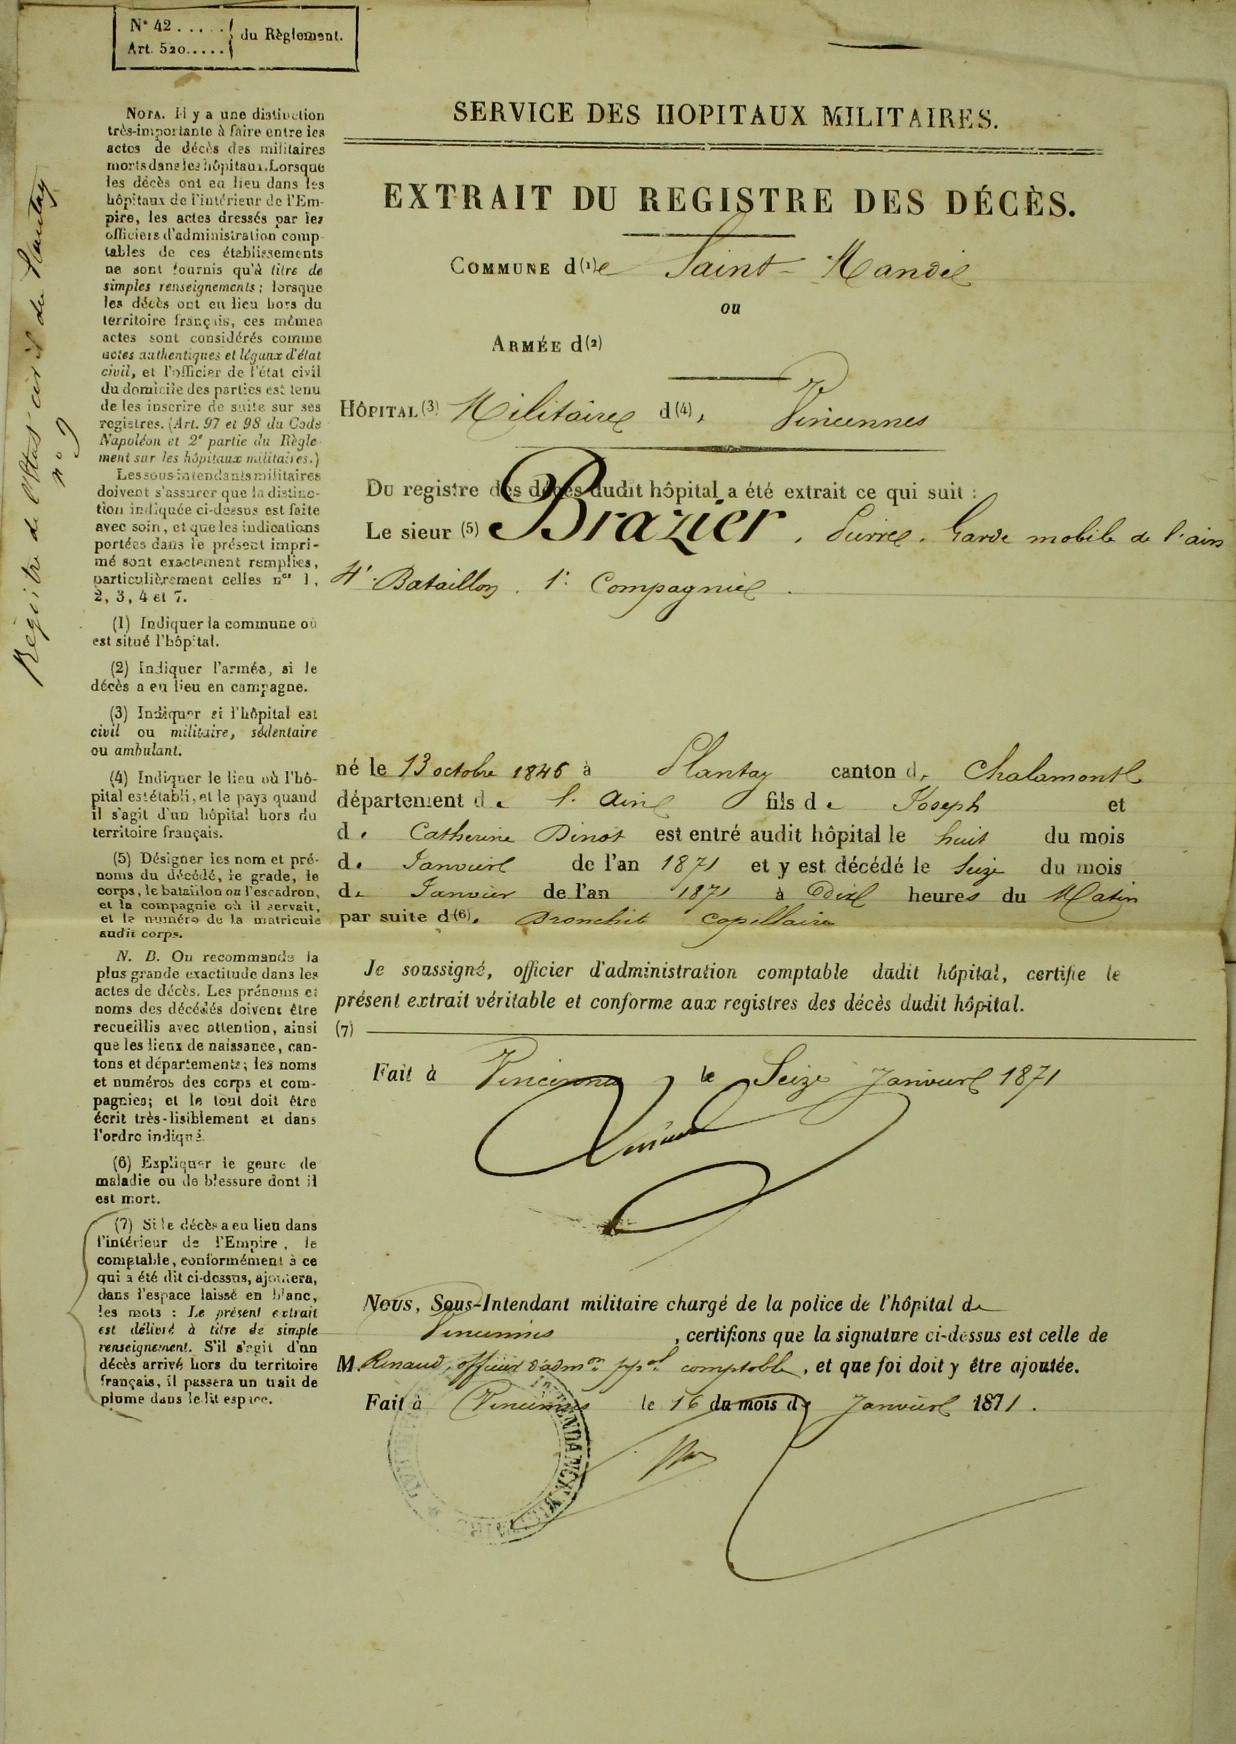 N° 42 . . . . .
Art. 520 . . . . .
du Règlement.
Registre de l'Etat civil du Plantay
n° 9
NOTA. Il y a une distinction
très-importante à faire entre les
actes de décès des militaires
morts dans les hôpitaux. Lorsque
les décès ont eu lieu dans les
hôpitaux de l'intérieur de l'Em-
pire, les actes dressés par les
officiers d'administration comp-
tables de ces établissements
ne sont fournis qu'à titre de
simples renseignements; lorsque
les décès ont eu lieu hors du
territoire français, ces mêmes
actes sont considérés comme
actes authentiques et légaux d'état
civil, et l'officier de l'état civil
du domicile des parties est tenu
de les inscrire de suite sur ses
registres. (Art. 97 et 98 du Code
Napoléon et 2e partie du Règle-
ment sur les hôpitaux militaires.)
Les sous-intendants militaires
doivent s'assurer que la distinc-
tion indiquée ci-dessus est faite
avec soin, et que les indications
portées dans le présent impri-
mé sont exactement remplies,
particulièrement celles nos 1,
2, 3, 4 et 7.
(1) Indiquer la commune où
est situé l'hôpital.
(2) Indiquer l'armée, si le
décès a eu lieu en campagne.
(3) Indiquer si l'hôpital est
civil ou militaire, sédentaire
ou ambulant.
(4) Indiquer le lieu où l'hô-
pital est établi, et le pays quand
il s'agit d'un hôpital hors du
territoire français.
(5) Désigner les nom et pré-
noms du décédé, le grade, le
corps, le bataillon ou l'escadron,
et la compagnie où il servait,
et le numéro de la matricule
audit corps.
N. B. On recommande la
plus grande exactitude dans les
actes de décès. Les prénoms et
noms des décédés doivent être
recueillis avec attention, ainsi
que les lieux de naissance, can-
tons et départements; les noms
et numéros des corps et com-
pagnies; et le tout doit être
écrit très-lisiblement et dans
l'ordre indiqué.
(6) Expliquer le genre de
maladie ou de blessure dont il
est mort.
(7) Si le décès a eu lieu dans
l'intérieur de l'Empire, le
comptable, conformément à ce
qui a été dit ci-dessus, ajoutera,
dans l'espace laissé en blanc,
les mots : Le présent extrait
est délivré à titre de simple
renseignement. S'il s'agit d'un
décès arrivé hors du territoire
français, il passera un trait de
plume dans ledit espace.
SERVICE DES HOPITAUX MILITAIRES.
EXTRAIT DU REGISTRE DES DÉCÈS.
COMMUNE d(1)e Saint-Mandé
ou
ARMÉE d(2)
HÔPITAL (3) Militaire d(4)e Vincennes
Du registre des décès dudit hôpital a été extrait ce qui suit :
Le sieur (5) Brazier, Pierre, Garde mobile de l'ain
4e Bataillon, 1e Compagnie.
né le 13 octobre 1846 à Plantay canton de Chalamont
département de l'Ain fils de Joseph et
de Catherine Dinot est entré audit hôpital le huit du mois
de Janvier de l'an 1871 et y est décédé le Seize du mois
de Janvier de l'an 1871 à Dix heures du Matin
par suite d(6)e Bronchite capillaire
Je soussigné, officier d'administration comptable dudit hôpital, certifie le
présent extrait véritable et conforme aux registres des décès dudit hôpital.
(7)
Fait à Vincennes, le Seize Janvier 1871
Nous, Sous-Intendant militaire chargé de la police de l'hôpital de
Vincennes, certifions que la signature ci-dessus est celle de
M. Renaud, officier d'admon ppal comptable, et que foi doit y être ajoutée.
Fait à Vincennes le 16 du mois de Janvier 1871.
INTENDANCE MILITAIRE